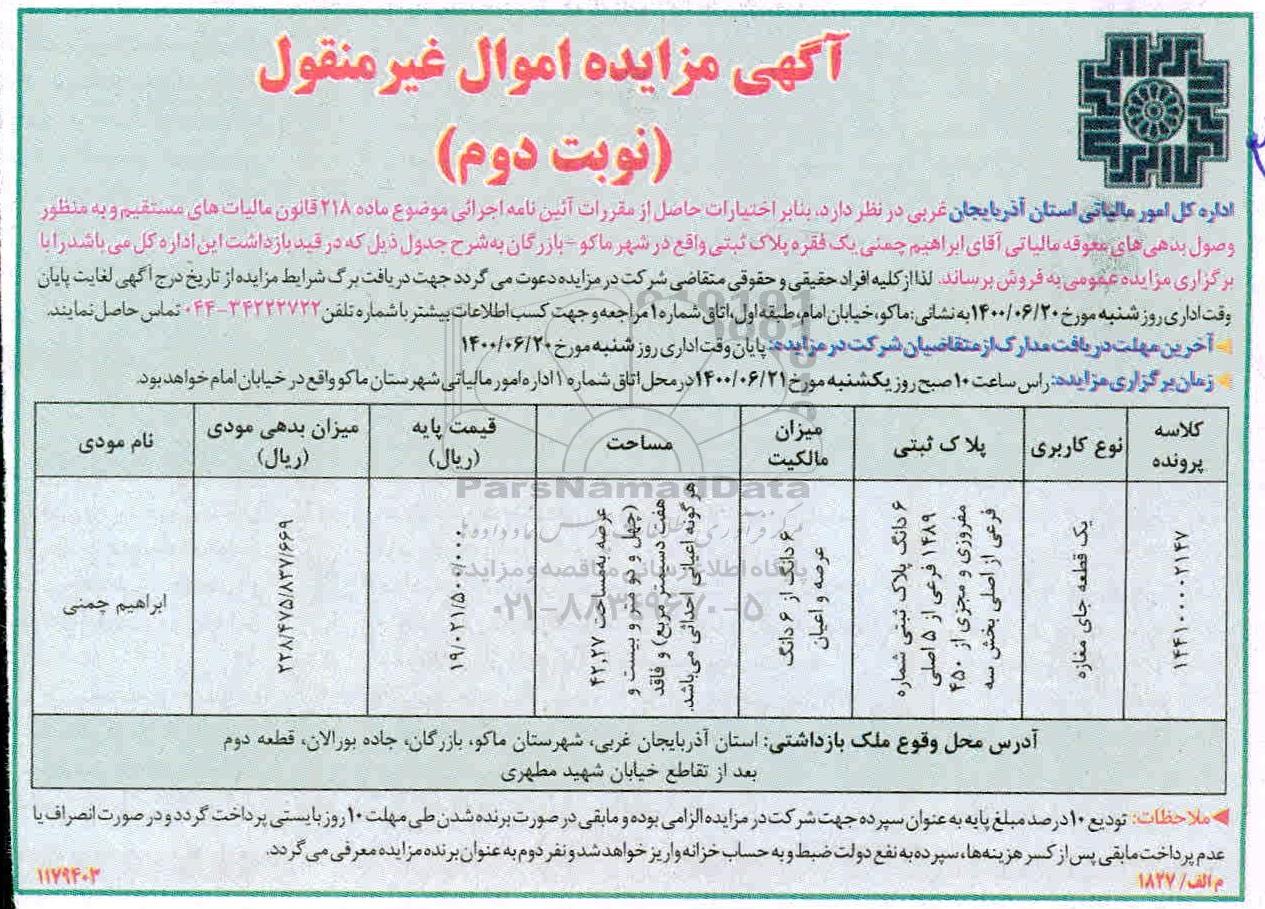 آگهی مزایده اموال غیر منقول
(نوبت دوم)
اداره کل امور مالیاتی استان آذربایجان غربی در نظر دارد، بنابر اختیارات حاصل از مقررات آئین نامه اجرائی موضوع ماده ۲۱۸ قانون مالیات های مستقیم و به منظور
وصول بدهی های معوقه مالیاتی آقای ابراهیم چمنی یک فقره پلاک ثبتی واقع در شهر ماکو - بازرگان به شرح جدول ذیل که در قید بازداشت این اداره کل می باشد را با
برگزاری مزایده عمومی به فروش برساند. لذا از کلیه افراد حقیقی و حقوقی متقاضی شرکت در مزایده دعوت می گردد جهت دریافت برگ شرایط مزایده از تاریخ درج آگهی لغایت پایان
وقت اداری روز شنبه مورخ ۱۴۰۰/۰۶/۲۰ به نشانی: ماکو، خیابان امام، طبقه اول، اتاق شماره ۱ مراجعه و جهت کسب اطلاعات بیشتر با شماره تلفن ۳۴۲۲۲۷۲۲-۰۴۴ تماس حاصل نمایند.
آخرین مهلت دریافت مدارک از متقاضیان شرکت در مزایده: پایان وقت اداری روز شنبه مورخ ۱۴۰۰/۰۶/۲۰
زمان برگزاری مزایده: راس ساعت ۱۰ صبح روز یکشنبه مورخ ۱۴۰۰/۰۶/۲۱ در محل اتاق شماره ۱ اداره امور مالیاتی شهرستان ماکو واقع در خیابان امام خواهد بود.
کلاسه پرونده
نوع کاربری
پلاک ثبتی
میزان مالکیت
مساحت
قیمت پایه (ریال)
میزان بدهی مودی (ریال)
نام مودی
۱۴۴۱۰۰۰۰۲۱۴۷
یک قطعه جای مغازه
۶ دانگ پلاک ثبتی شماره
۱۴۸۹ فرعی از ۵ اصلی
مفروزی و مجزی از ۴۵۰
فرعی از اصلی بخش سه
۶ دانگ از ۶ دانگ
عرصه و اعیان
عرصه به مساحت ۴۲,۲۷
(چهل و دو متر و بیست و
هفت دسیمتر مربع) و فاقد
هرگونه اعیانی احداثی می‌باشد.
۱۹/۰۲۱/۵۰۰/۰۰۰
۲۲۸/۴۷۵/۸۳۷/۶۶۹
ابراهیم چمنی
آدرس محل وقوع ملک بازداشتی: استان آذربایجان غربی، شهرستان ماکو، بازرگان، جاده بورالان، قطعه دوم
بعد از تقاطع خیابان شهید مطهری
ملاحظات: تودیع ۱۰ درصد مبلغ پایه به عنوان سپرده جهت شرکت در مزایده الزامی بوده و مابقی در صورت برنده شدن طی مهلت ۱۰ روز بایستی پرداخت گردد و در صورت انصراف یا
عدم پرداخت مابقی پس از کسر هزینه‌ها، سپرده به نفع دولت ضبط و به حساب خزانه واریز خواهد شد و نفر دوم به عنوان برنده مزایده معرفی می گردد.
م الف/ ۱۸۲۷
۱۱۷۹۴۰۳
ParsNamadData
پایگاه اطلاع رسانی مناقصه و مزایده
۰۲۱-۸۸۳۴۹۶۷۰-۵